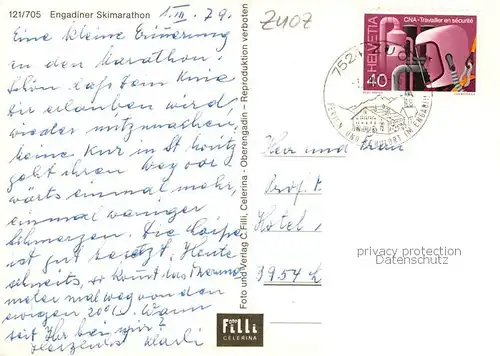 121/705 Engadiner Skimarathon
1. III. 79.
Eine kleine Erinnerung
an den Marathon.
Schön dass dem Knie
dir erlauben wird
wieder mitzumachen.
Meine Kur in St. Moritz
geht ihren Weg vor
wärts einmal mehr,
einmal weniger
Schmerzen. Die Loipe
ist gut besetzt. Heute
schneits, so kommt das Thermo
meter mal weg von den
ewigen 20°. Wann
seit Ihr hier?
Herzlichst
Foto und Verlag C. Filli, Celerina - Oberengadin - Reproduktion verboten
Foto
Filli
CELERINA
ZUOZ
HELVETIA
CNA - Travailler en sécurité
40
752
FERIEN UND IM ENGADIN
Herr und Frau
Prof.
Hotel
3954 L
privacy protection
Datenschutz